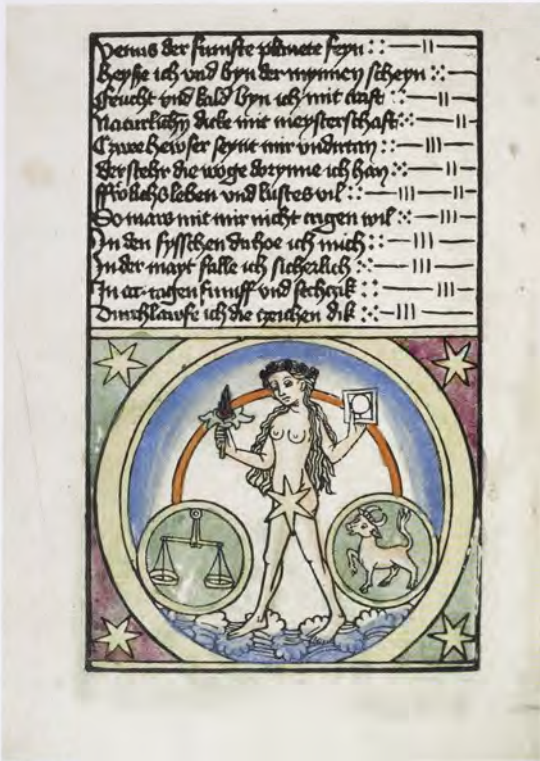 Venus der funfste planete feyn
Heysse ich vnd byn der mynnen scheyn
Feucht vnd kald byn ich mit craft
Naturlichn dicke mit meysterschaft
Czwe hewser seynt mir vndirtan
der stehr die woge dorynne ich han
ffrolichs leben vnd lustes vil
So mars mit mir nicht crigen wil
In den fysschen dirhoe ich mich
In der mayt falle ich sicherlich
In tagen funff vnd sechczik
Durchlawfe ich die czeichen dik